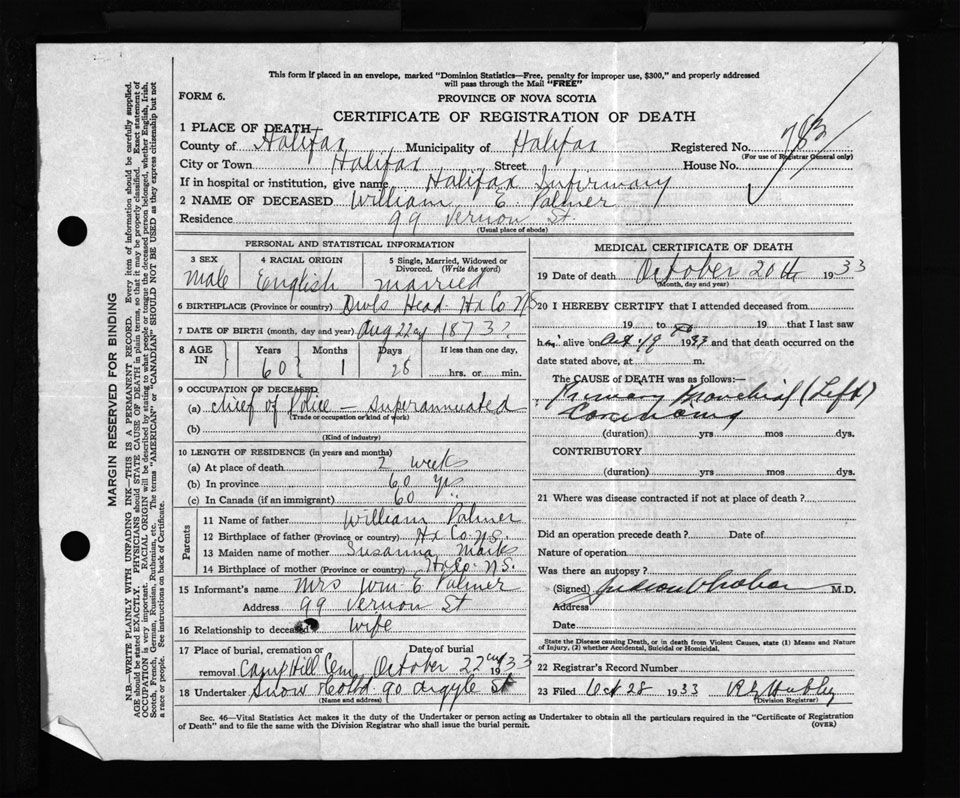 This form if placed in an envelope, marked "Dominion Statistics—Free, penalty for improper use, $300," and properly addressed
will pass through the Mail "FREE"
FORM 6.
PROVINCE OF NOVA SCOTIA
CERTIFICATE OF REGISTRATION OF DEATH
1 PLACE OF DEATH—
County of Halifax Municipality of Halifax Registered No. 783
(For use of Registrar General only)
City or Town Halifax Street House No.
If in hospital or institution, give name Halifax Infirmary
2 NAME OF DECEASED William E. Palmer
Residence 99 Vernon St
(Usual place of abode)
PERSONAL AND STATISTICAL INFORMATION
3 SEX 4 RACIAL ORIGIN 5 Single, Married, Widowed or
Divorced. (Write the word)
Male English Married
6 BIRTHPLACE (Province or country) Owls Head Hx Co NS
7 DATE OF BIRTH (month, day and year) Aug 22nd 1873?
8 AGE IN Years Months Days If less than one day,
60 1 28 hrs. or min.
9 OCCUPATION OF DECEASED
(a) Chief of Police — Superannuated
(Trade or occupation or kind of work)
(b)
(Kind of industry)
10 LENGTH OF RESIDENCE (in years and months)
(a) At place of death 2 weeks
(b) In province 60 yrs
(c) In Canada (if an immigrant) 60 "
Parents
11 Name of father William Palmer
12 Birthplace of father (Province or country) Hx Co. N.S.
13 Maiden name of mother Susanna Marks
14 Birthplace of mother (Province or country) Hx Co N.S.
15 Informant's name Mrs Wm E Palmer
Address 99 Vernon St
16 Relationship to deceased Wife
17 Place of burial, cremation or Date of burial
removal Camp Hill Cem October 22nd 1933
18 Undertaker Snow & Co Ltd 90 Argyle St
(Name and address)
MEDICAL CERTIFICATE OF DEATH
19 Date of death October 20th 1933
(Month, day and year)
20 I HEREBY CERTIFY that I attended deceased from
19 to 19 that I last saw
him alive on Oct 19 1933 and that death occurred on the
date stated above, at m.
The CAUSE of DEATH was as follows:—
Primary Bronchial (Left)
Carcinoma
(duration) yrs mos dys.
CONTRIBUTORY
(duration) yrs mos dys.
21 Where was disease contracted if not at place of death?
Did an operation precede death? Date of
Nature of operation
Was there an autopsy?
(Signed) M.D.
Address
Date
State the Disease causing Death, or in death from Violent Causes, state (1) Means and Nature
of Injury, (2) whether Accidental, Suicidal or Homicidal.
22 Registrar's Record Number
23 Filed Oct 28 1933
(Division Registrar)
Sec. 46—Vital Statistics Act makes it the duty of the Undertaker or person acting as Undertaker to obtain all the particulars required in the "Certificate of Registration
of Death" and to file the same with the Division Registrar who shall issue the burial permit. (OVER)
MARGIN RESERVED FOR BINDING
N.B.—WRITE PLAINLY WITH UNFADING INK—THIS IS A PERMANENT RECORD. Every item of information should be carefully supplied.
AGE should be stated EXACTLY. PHYSICIANS should STATE CAUSE OF DEATH in plain terms, so that it may be properly classified. Exact statement of
OCCUPATION is very important. RACIAL ORIGIN will be described by stating to what people or tongue the deceased person belonged, whether English, Irish,
Scotch, French, German, Russian, Ruthenian, etc. The terms "AMERICAN" or "CANADIAN" SHOULD NOT BE USED as they express citizenship but not
a race or people. See instructions on back of Certificate.